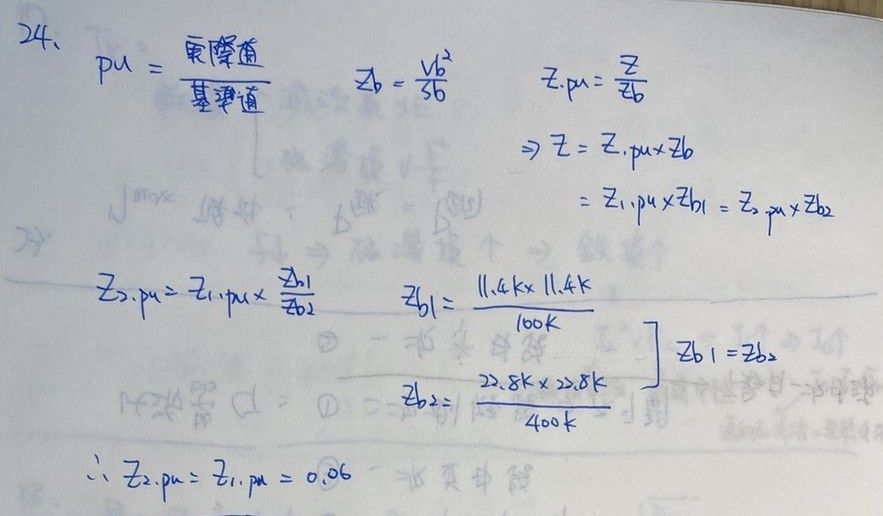 24、
pu = 實際值 / 基準值   Zb = Vb² / Sb   Z.pu = Z / Zb
⇒ Z = Z.pu × Zb
= Z₁.pu × Zb1 = Z₂.pu × Zb2
Z₂.pu = Z₁.pu × Zb1 / Zb2   Zb1 = 11.4k × 11.4k / 100k
Zb2 = 22.8k × 22.8k / 400k   ] Zb1 = Zb2
∴ Z₂.pu = Z₁.pu = 0.06